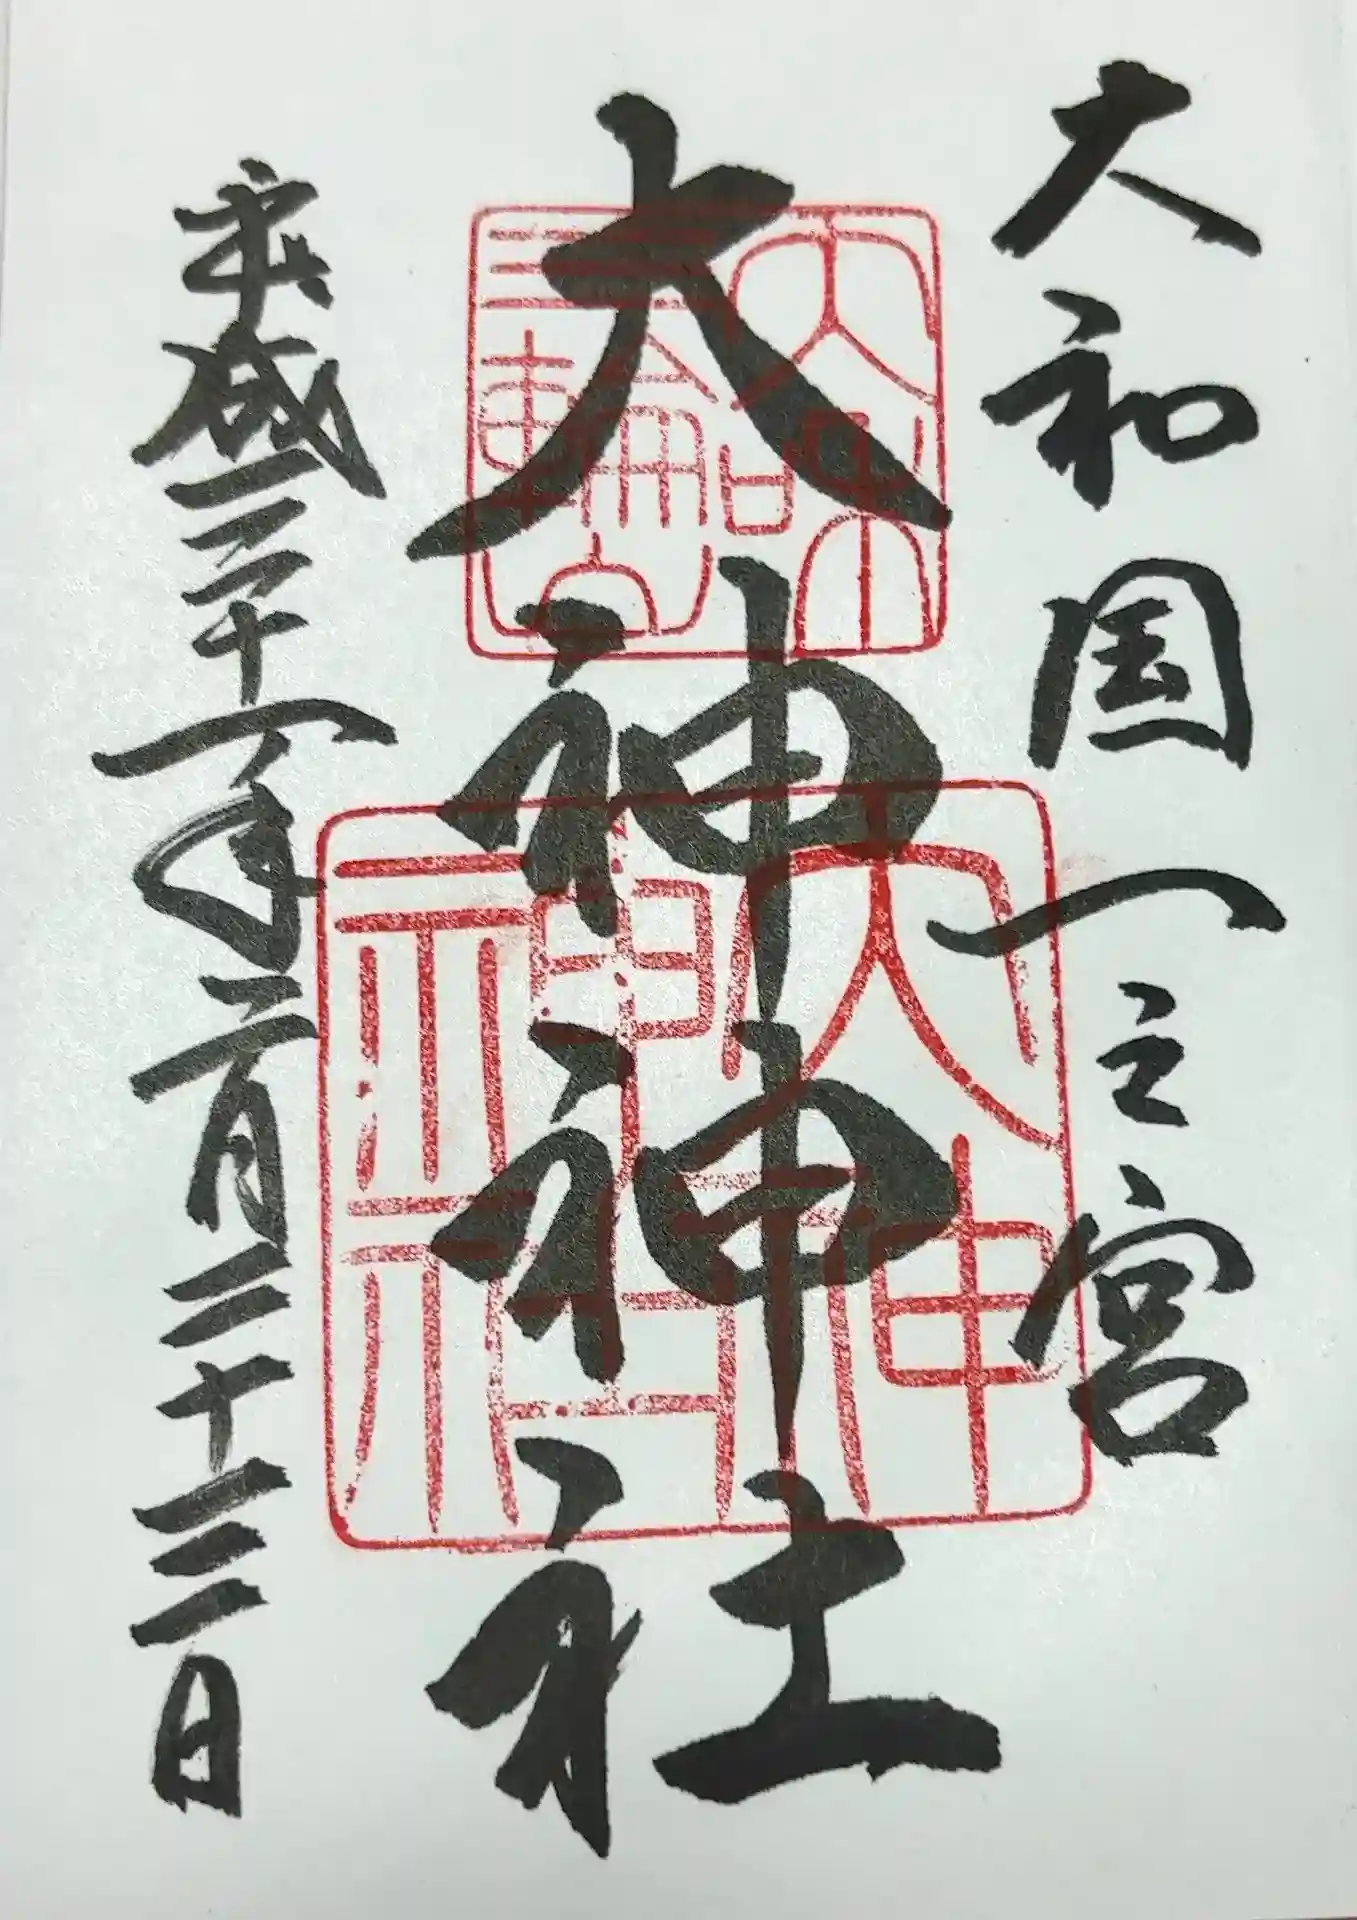 大和国一之宮
大神神社
平成三十一年二月二十三日
大和
三輪山
大神
神社